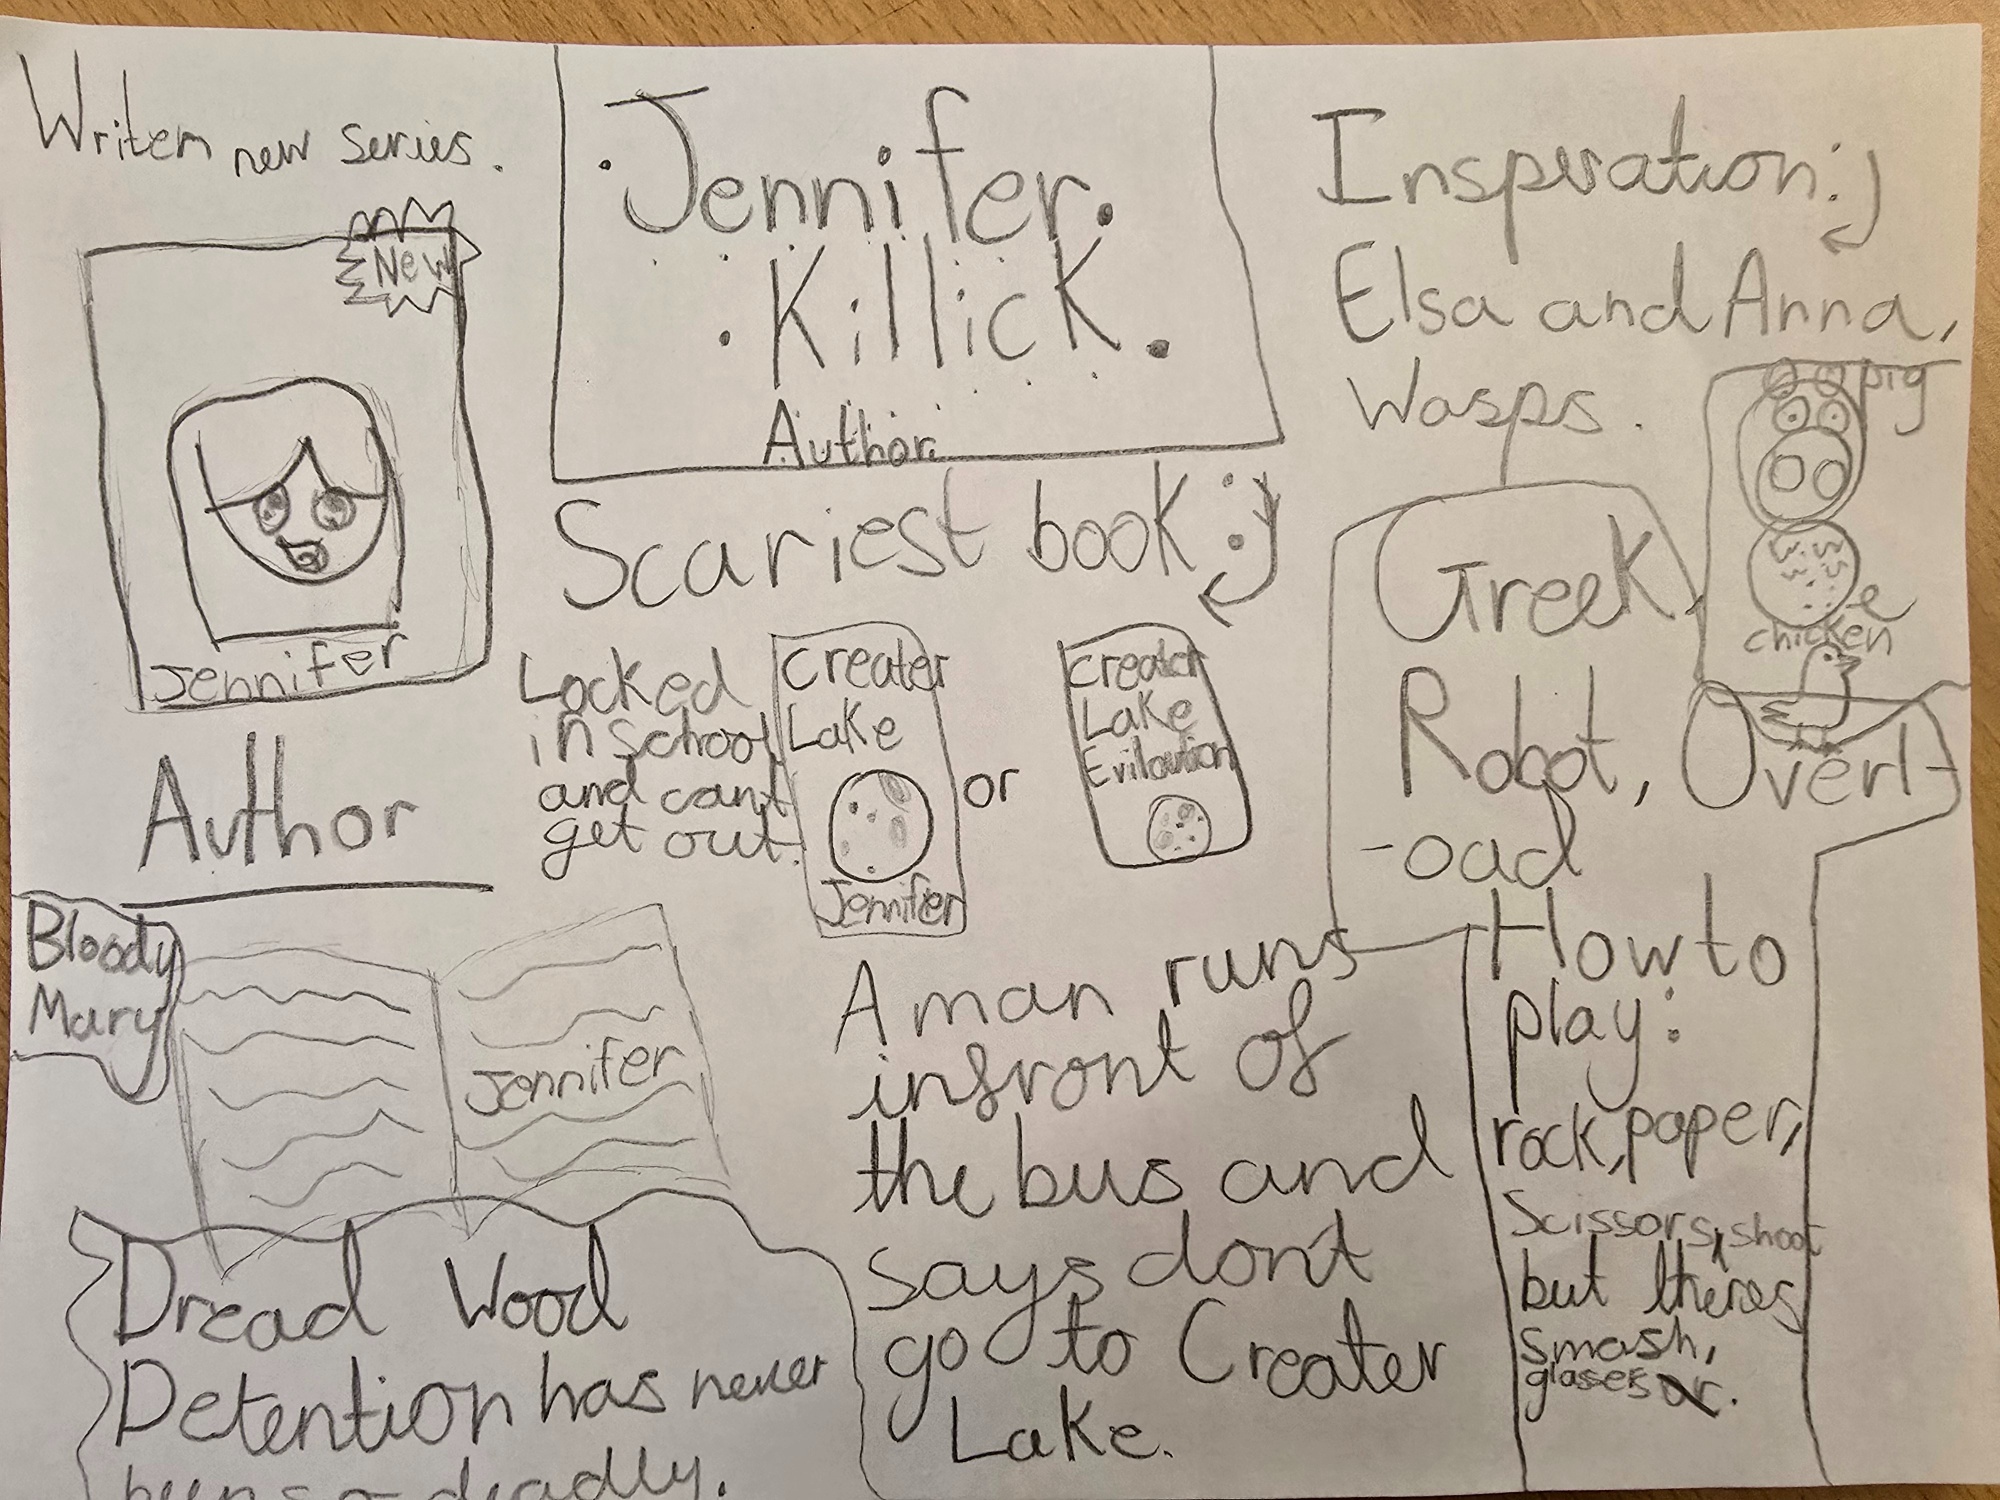 Writen new series.
New
Jennifer
Author
Jennifer.
Killick.
Author
Inspiration:
Elsa and Anna,
Wasps.
pig
chicken
Greek
Robot, Overl-
-oad
Scariest book:
Locked
in school
and cant
get out.
Creater
Lake
Jennifer
or
Creater
Lake
Evilaution
Bloody
Mary
Jennifer
Dread Wood
Detention has never
been so deadly.
A man runs
infront of
the bus and
says don't
go to Creater
Lake.
How to
play:
rock, paper,
Scissors, shoot
but theres
smash,
glases